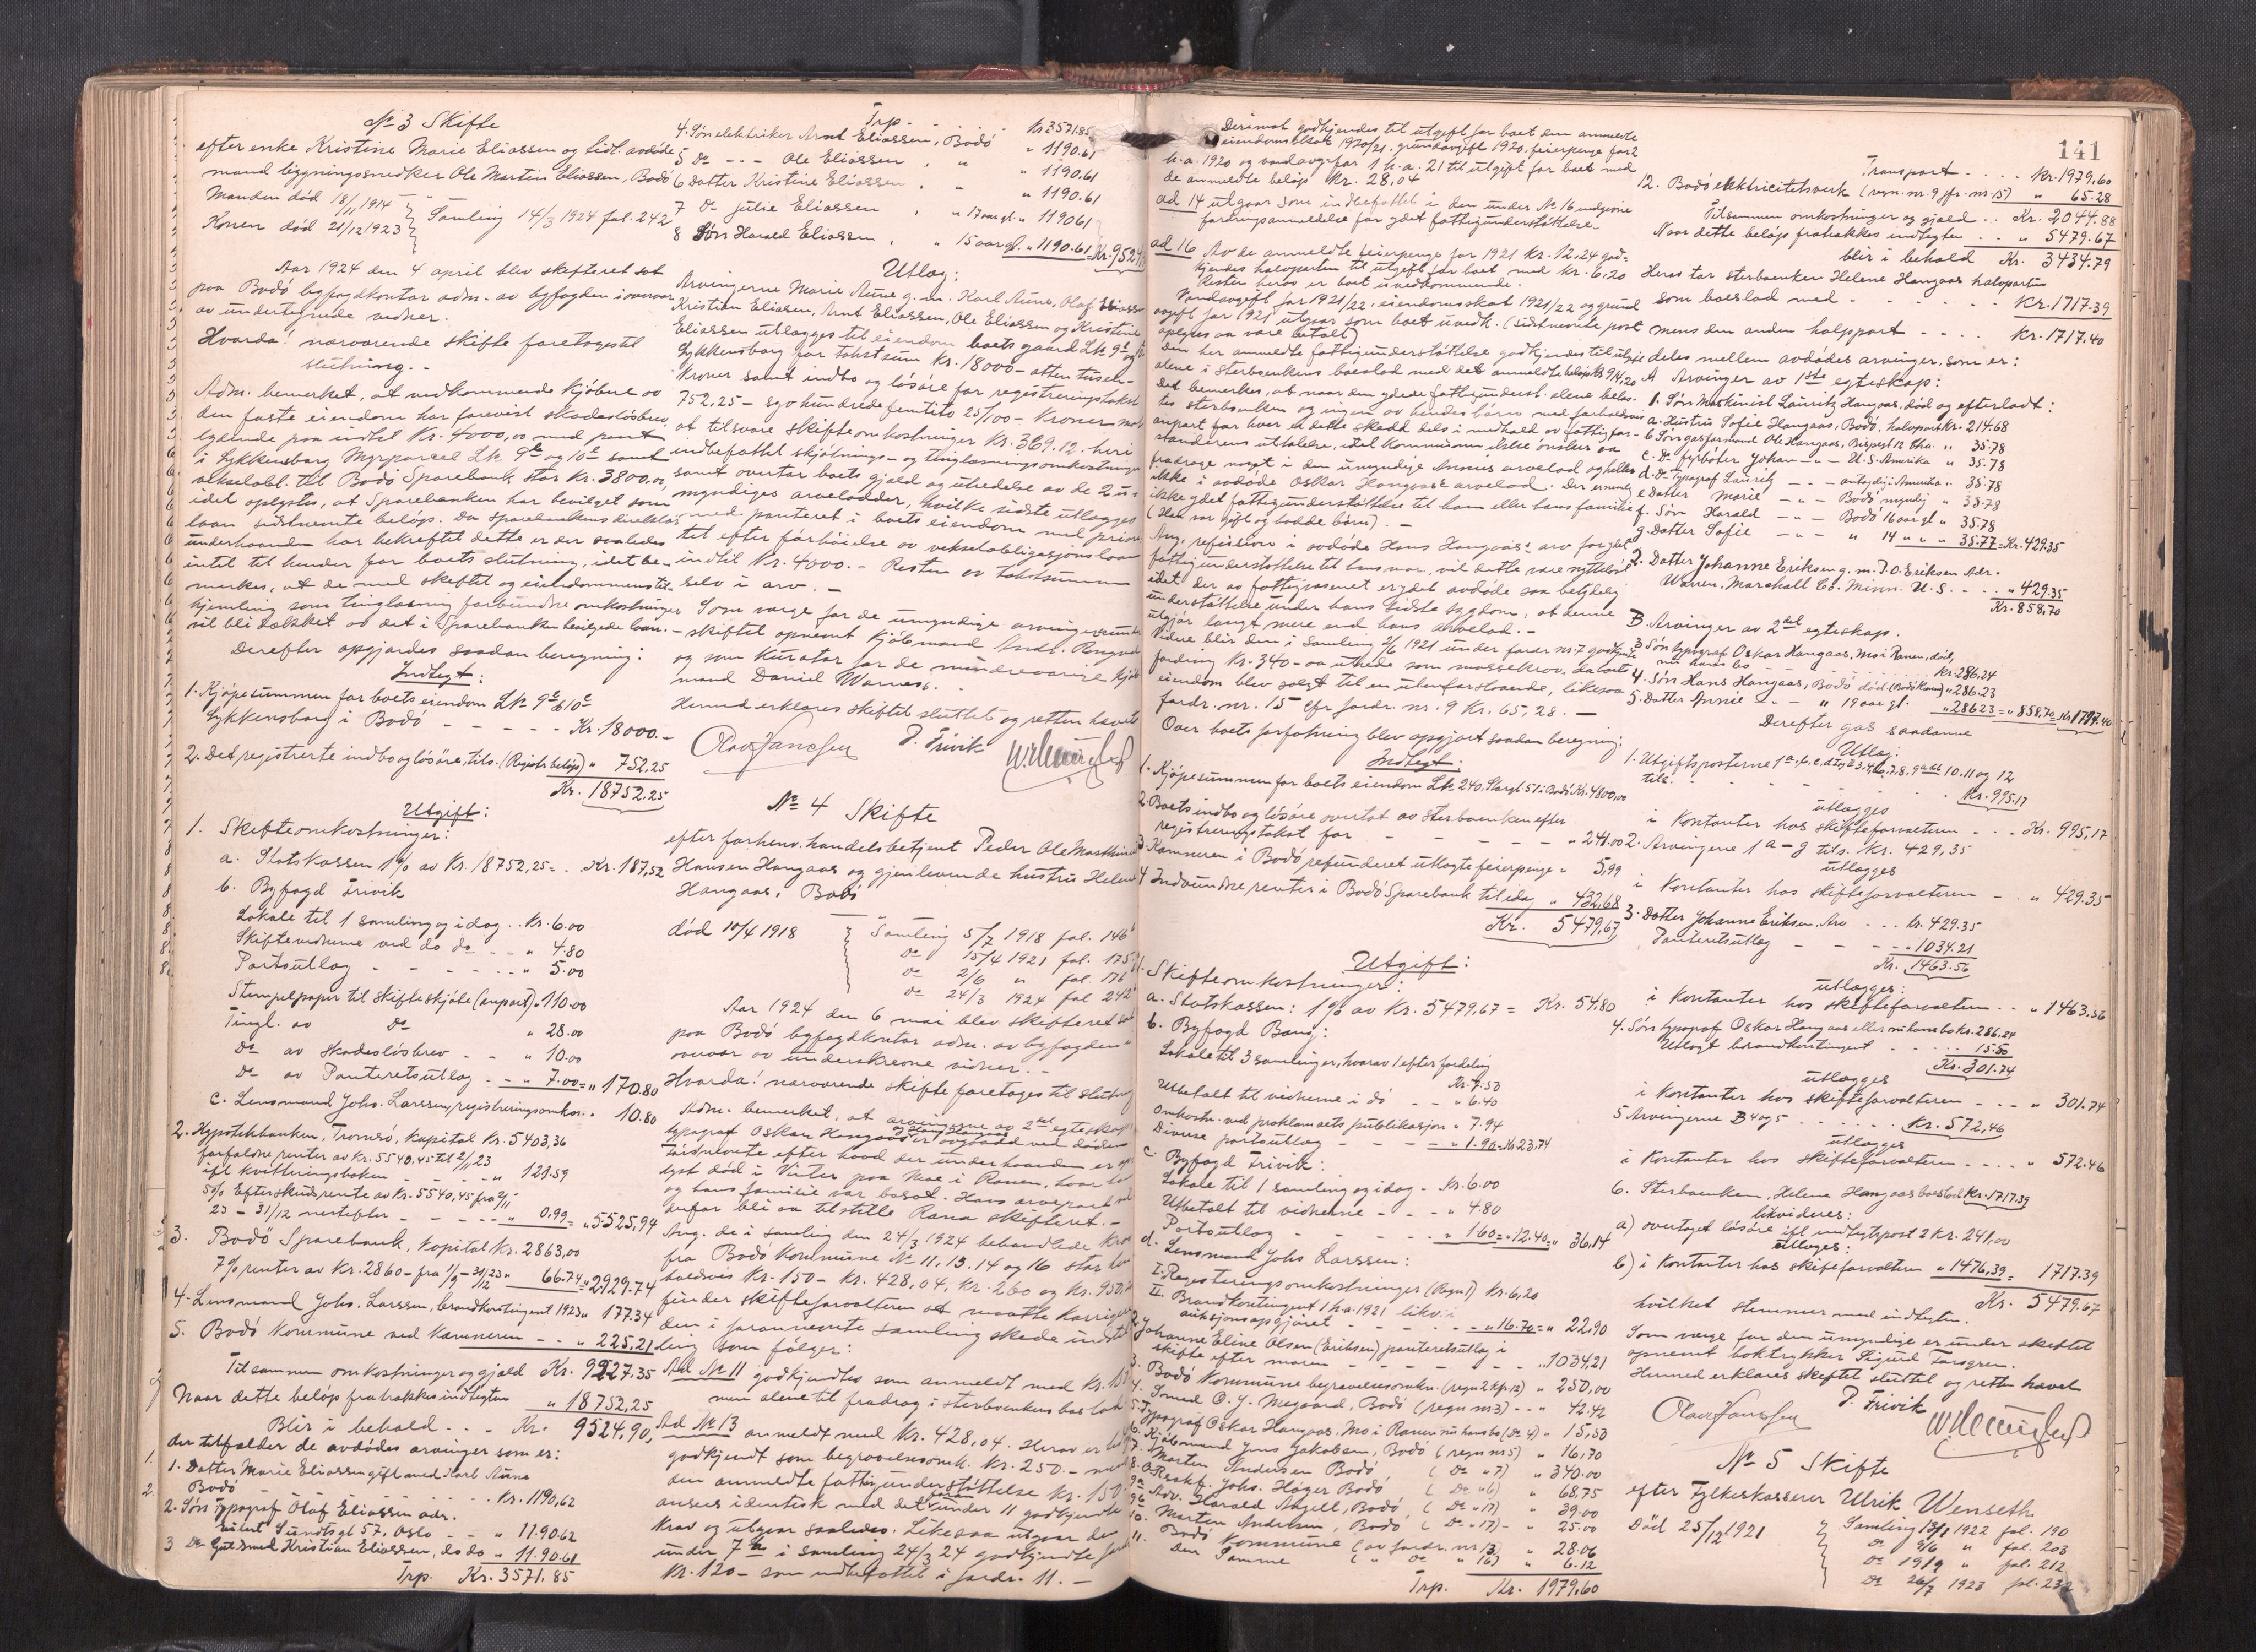 No 3 Skifte
efter enke Kristine Marie Eliassen og tidl. avdøde
mand bygningssnedker Ole Martin Eliassen, Bodø
Manden død 18/11 1914
Konen død 21/12 1923
Samling 14/3 1924 fol. 242
Aar 1924 den 4 april blev skifteret sat
paa Bodø byfogdkontor adm. av byfogden i overvær
av undertegnede vidner.
Hvorda! nærværende skifte foretages til
slutning. -
Adm. bemerket, at vedkommende kjøbere av
den faste eiendom har forevist skadesløsbrev
lydende paa indtil Kr. 4000,00 med pant
i Lykkensborg Myrparcel Lk 9b og 10c samt
vekselobl. til Bodø Sparebank stor kr. 3800,00,
idet oplystes, at Sparebanken har bevilget som
laan sidstnevnte beløp. Da Sparebankens direktør
underhaanden har bekreftet dette er der saaledes
intet til hinder for boets slutning, idet be-
merkes, at de med skiftet og eiendommens til-
hjemling som tinglæsning forbundne omkostninger
vil bli dækket av det i Sparebanken bevilgede laan. -
Derefter opgjordes saadan beregning:
Indtægt:
1. Kjøpesummen for boets eiendom Lk 9b & 10c
Lykkensborg i Bodø - - - - Kr. 18000.-
2. Det registrerte indbo og løsøre, tils. (Registr. beløp) " 752,25
Kr. 18752,25
Utgift:
1. Skifteomkostninger:
a. Statskassen 1% av Kr. 18752,25 = . Kr. 187,52
b. Byfogd Trivik
Lokale til 1 samling og idag .. Kr. 6.00
Skiftevidnerne ved do do - - " 4.80
Portoutlæg - - - - - " 5.00
Stempelpapir til skifteskjøte (anpart) " 110.00
Tingl. av Do " 28.00
Do av skadesløsbrev - - " 10.00
Do av Panteretsutlæg - - " 7.00 = " 170.80
c. Lensmand Johs. Larssen, registreringsomkos. . 10.80
2. Hypotekbanken, Tromsø, kapital Kr. 5403,36
forfaldne renter av Kr. 5540,45 til 2/11 23
ifl kvitteringsboken - - - - " 121.59
5% Efterskudsrente av Kr. 5540,45 fra 2/11
23 - 31/12 nestefter - - - - " 0,99 = " 5525,94
3. Bodø Sparebank, kapital Kr. 2863,00
7% renter av Kr. 2860 - fra 1/9 - 31/12 23 " 66.74 = " 2929.74
4. Lensmand Johs. Larssen, brandkontingent 1923 " 177.34
5. Bodø Kommune ved Kæmneren - - " 225,21
Tilsammen omkostninger og gjæld Kr. 9227.35
Naar dette beløp fratrækkes indtægten " 18752,25
Blir i behold - - - Kr. 9524,90,
der tilfalder de avdødes arvinger som er:
1. Datter Marie Eliassen gift med Karl Aune
Bodø - - - - - - - - Kr. 1190,62
2. Søn Typograf Olaf Eliassen adr.
Eilert Sundtsgt 57, Oslo - - " 11.90.62
3 Do Gulsmed Kristian Eliassen, do do " 11.90.61
Trp. Kr. 3571.85
Trp. - - - Kr. 3571.85
4. Søn elektriker Arnt Eliassen, Bodø " 1190.61
5 Do - - - Ole Eliassen, " " 1190.61
6 Datter Kristine Eliassen, " " 1190.61
7 Do Julie Eliassen, " 17 aar gl. " 1190.61
8 Søn Harald Eliassen, " 15 aar gl. " 1190.61 = Kr. 9524,
Utlæg:
Arvingerne Marie Aune g. m. Karl Aune, Olaf Eliassen
Kristian Eliassen, Arnt Eliassen, Ole Eliassen og Kristine
Eliassen utlægges til eiendom boets gaard Lk 9b og
Lykkensborg for takstsum Kr. 18000 - atten tusen -
Kroner samt indbo og løsøre for registreringstakst
752,25 - syvhundredefemtito 25/100 - Kroner mot
at tilsvare skifteomkostninger Kr. 369.12, heri
indbefattet skjøtnings- og tinglæsningsomkostninger
samt overtar boets gjæld og utredelse av de 2 u-
myndiges arvelodder, hvilke sidste utlægges
med panteret i boets eiendom med priori-
tet efter forhøielse av vekselobligasjonslaan
indtil Kr. 4000. - Resten av takstsummen
selv i arv. -
Som værge for de umyndige arvinger er under
skiftet opnevnt kjøbmand Andr. Rongved
og som Kurator for de mindreaarige kjøb-
mand Daniel Warness.
Hermed erklæres skiftet sluttet og retten hævet
Olav Janssen P. Trivik
No 4 Skifte
efter forhenv. handelsbetjent Peder Ole Mathias
Hansen Hangaas og gjenlevende hustru Helene
Hangaas, Bodø
død 10/4 1918
Samling 5/7 1918 fol. 146
Do 15/4 1921 fol. 175
Do 2/6 " fol. 176
Do 24/3 1924 fol 242
Aar 1924 den 6 mai blev skifteret sat
paa Bodø byfogdkontor adm. av byfogden i
overvær av underskrevne vidner. -
Hvorda! nærværende skifte foretages til slutning
Adm. bemerket, at arvingerne av 2det egteskap
typograf Oskar Hangaas og Hans Hangaas er avgaadd ved døden
Sidstnevnte efter hvad der underhaanden er op-
lyst død i Vinter paa Moe i Ranen, hvor han
og hans familie var bosat. Hans arvepart
derfor bli aa tilstille Rana skifteret. -
Ang. de i samling den 24/3 1924 behandlede Krav
fra Bodø Kommune No 11, 13, 14 og 16 stor hen-
holdsvis Kr. 150 - Kr. 428,04, Kr. 260 og Kr. 950,
finder skifteforvalteren at maatte korrigere
den i forannevnte samling skede indstil-
ling som følger:
Ad No 11 godkjendtes som anmeldt med Kr. 150
men alene til fradrag i sterboenkens boslod
Ad No 13 anmeldt med Kr. 428,04. Herav er
godkjendt som begravelsesomk. Kr. 250. - men
den anmeldte fattigunderstøttelse Kr. 150
ansees identisk med det under 11 godkjendte
Krav og utgaar saaledes. Likesaa utgaar den
under 7 i samling 24/3 24 godkjendte
Kr. 120 - som indbefattet i fordr. 11. -
141
Derimot godkjendes til utgift for boet den anmeldte
eiendomsskat 1920/21, grundavgift 1920, feierpenge for 2
h.a. 1920 og vandavg. for 1 h.a. 21 til utgift for boet med
de anmeldte beløp Kr. 28,04
ad 14 utgaar som indbefattet i den under No 16 indgivne
fordringsanmeldelse for ydet fattigunderstøttelse.
ad 16 Av de anmeldte feierpenge for 1921 Kr. 12,24 god-
kjendes halvparten til utgift for boet med Kr. 6,20
Resten herav er boet uvedkommende.
Vandavgift for 1921/22, eiendomsskat 1921/22 og grund
avgift for 1921 utgaar som boet uvedk. (sidstnevnte post
oplyses aa være betalt)
Den her anmeldte fattigunderstøttelse godkjendes til utgift
alene i sterboenkens boeslod med det anmeldte beløp Kr 914,20
Det bemerkes, at naar den ydede fattigunderst. alene belas-
tes sterboenken og ingen av hendes børn med forholdsvis
anpart for hver er dette skedd dels i medhold av fattigfor-
standerens uttalelse, idet kommunen ikke ønsker aa
fradrage noget i den umyndige Annies arvelod og heller
ikke i avdøde Oskar Hangaas's arvelod. Der er nemlig
ikke ydet fattigunderstøttelse til ham eller hans familie
(Han var gift og hadde børn). -
Ang. refusion i avdøde Hans Hangaas's arv for ydet
fattigunderstøttelse til hans mor, vil dette være nytteløst
idet der av fattigvæsenet er ydet avdøde saa betydelig
understøttelse under hans sidste sygdom, at denne
utgjør langt mere end hans arvelod. -
Videre blir den i samling 2/6 1921 under fordr nr. 7 godkjente
fordring Kr. 340 - aa utrede som massekrav, da boets
eiendom blev solgt til en utenforstaaende, likesaa
fordr. nr. 15 cfr fordr. nr. 9 Kr. 65,28. -
Over boets forfatning blev opgjort saadan beregning:
Indtægt:
1. Kjøpesummen for boets eiendom Lk 240, Storgt 51 i Bodø Kr. 4800,00
2. Boets indbo og løsøre overtat av sterboenken efter
registreringstakst for - - - - " 241.00
3. Kæmneren i Bodø refunderet utlagte feierpenge " 5,99
4 Indvundne renter i Bodø Sparebank til idag " 432,68
Kr. 5479,67
Utgift:
1. Skifteomkostninger:
a. Statskassen: 1% av Kr. 5479,67 = Kr. 54,80
b. Byfogd Bang:
Lokale til 3 samlinger, hvorav 1 efter fordeling
Kr. 7.50
Utbetalt til vidnerne i do - - " 6.40
Omkostn. ved proklamaets publikasjon " 7.94
Diverse portoutlæg - - - - " 1.90 = Kr 23,74
c. Byfogd Trivik:
Lokale til 1 samling og idag - Kr. 6.00
Utbetalt til vidnerne - - - " 4.80
Portoutlæg - - - - - " 1 60 = " 12.40 = " 36,14
d. Lensmand Johs Larssen:
I. Registreringsomkostninger (Regn 1) Kr. 6,20
II. Brandkontingent 1 h.a. 1921 likv. i
auksjonsopgjøret - - - - - " 16.70 = " 22,90
2. Johanne Eline Olsen (Eriksen) panteretsutlæg i
skifte efter moren - - - - - - - " 1034,21
3. Bodø Kommune begravelsesomkn. (regn 2 kfr. 12) " 250,00
4. Smed O. J. Megaard, Bodø (regn nr 3) - - " 42.42
5. Typograf Oskar Hangaas, Mo i Ranen nu hans bo (Do 4) " 15,50
6. Kjøbmand Jens Jakobsen, Bodø (regn nr 5) " 16,70
7. Morten Andersen Bodø (Do " 7) " 340.00
8. O.R.sakf. Johs. Höyer Bodø (Do " 6) " 68,75
9a Adv. Harald Angell, Bodø (Do " 17) " 39.00
10. Morten Andersen, Bodø (Do " 17) - " 25.00
11. Bodø Kommune (av fordr. nr. 13) " 28.06
Den samme (" Do " 16) " 6.12
Trp. Kr. 1979,60
Transport - - - - Kr. 1979,60
12. Bodø elektricitetsverk (regn. nr. 9 jfr. nr. 15) " 65.28
Tilsammen omkostninger og gjæld .. Kr. 2044.88
Naar dette beløp fratrækkes indtægten - - " 5479.67
blir i behold Kr. 3434.79
Herav tar sterboenken Helene Hangaas halvparten
som boeslod med - - - - - - Kr. 1717.39
mens den anden halvpart - - - Kr. 1717.40
deles mellem avdødes arvinger, som er:
A Arvinger av 1ste egteskap:
1. Søn Maskinist Lauritz Hangaas, død og efterladt:
a. Hustru Sofie Hangaas, Bodø, halvpart kr. 214.68
b Søn gasformand Ole Hangaas, 12 Stha. " 35.78
c. Do fyrbøter Johan - " - U.S. Amerika " 35.78
d. Do Typograf Lauritz - " - antagelig i Amerika " 35.78
e Datter Marie - " - Bodø myndig " 35.78
f. Søn Harald - " - Bodø 16 aar gl " 35.78
g. Datter Sofie - " - " 14 " " " 35.77 = Kr. 429.35
2. Datter Johanne Eriksen g. m. J. O. Eriksen Adr.
Warren, Marshall Co. Minn. U. S. - - - " 429.35
Kr. 858,70
B. Arvinger av 2det egteskap.
3 Søn typograf Oskar Hangaas, Mo i Ranen, død,
nu hans bo - - - - - Kr. 286,24
4. Søn Hans Hangaas, Bodø død (Bodø Kom) " 286.23
5. Datter Annie - - " 19 aar gl. " 286.23 = " 858,70 Kr 1717.40
Derefter gas saadanne
Utlæg:
1. Utgiftsposterne 1 a, b, c, d I og II 3, 4, 6, 7, 8, 9 a & b 10, 11 og 12
tils. - - - - - - Kr. 995.17
utlægges
i Kontanter hos skifteforvalteren - - - Kr. 995,17
2. Arvingerne 1 a - g tils. Kr. 429,35
utlægges
i Kontanter hos skifteforvalteren - . " 429.35
3. Datter Johanne Eriksen, Arv - - - Kr. 429.35
Panteretsutlæg - - - - " 1034.21
Kr. 1463.56
utlægges:
i Kontanter hos skifteforvalteren - - " 1463,56
4. Søn typograf Oskar Hangaas eller nu hans bo kr. 286.24
Utlagt brandkontingent - - - - - 15.50
Kr. 301.74
utlægges
i Kontanter hos skifteforvalteren - - - " 301.74
5 Arvingerne B 4 og 5 - - - - Kr. 572,46
utlægges
i Kontanter hos skifteforvalteren - - - - " 572.46
6. Sterboenken, Helene Hangaas boeslod Kr. 1717.39
likvideres:
a) overtaget løsøre ifl indtægtspost 2 Kr. 241,00
utlæges:
b) i Kontanter hos skifteforvalteren " 1476,39 = 1717.39
Kr. 5479.67
hvilket stemmer med indtægten.
Som værge for den umyndige er under skiftet
opnevnt boktrykker Sigurd Forsgren.
Hermed erklæres skiftet sluttet og retten hævet
Olav Janssen P. Trivik
No 5 Skifte
efter Fylkeskasserer Ulrik Wenseth
Død 25/12 1921
Samling 13/1 1922 fol. 190
Do 9/6 " fol. 203
Do 19/9 " fol. 212
Do 26/7 1923 fol. 232